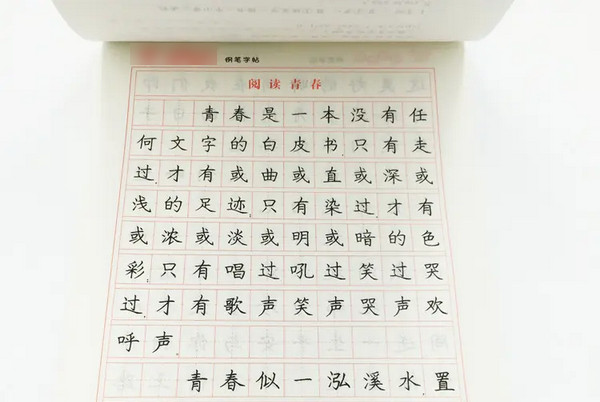 钢笔字帖
阅读青春
青春是一本没有任
何文字的白皮书只有走
过，才有或曲或直或深或
浅的足迹，只有染过，才有
或浓或淡或明或暗的色
彩，只有唱过吼过笑过哭
过，才有歌声笑声哭声欢
呼声。
青春似一泓溪水置